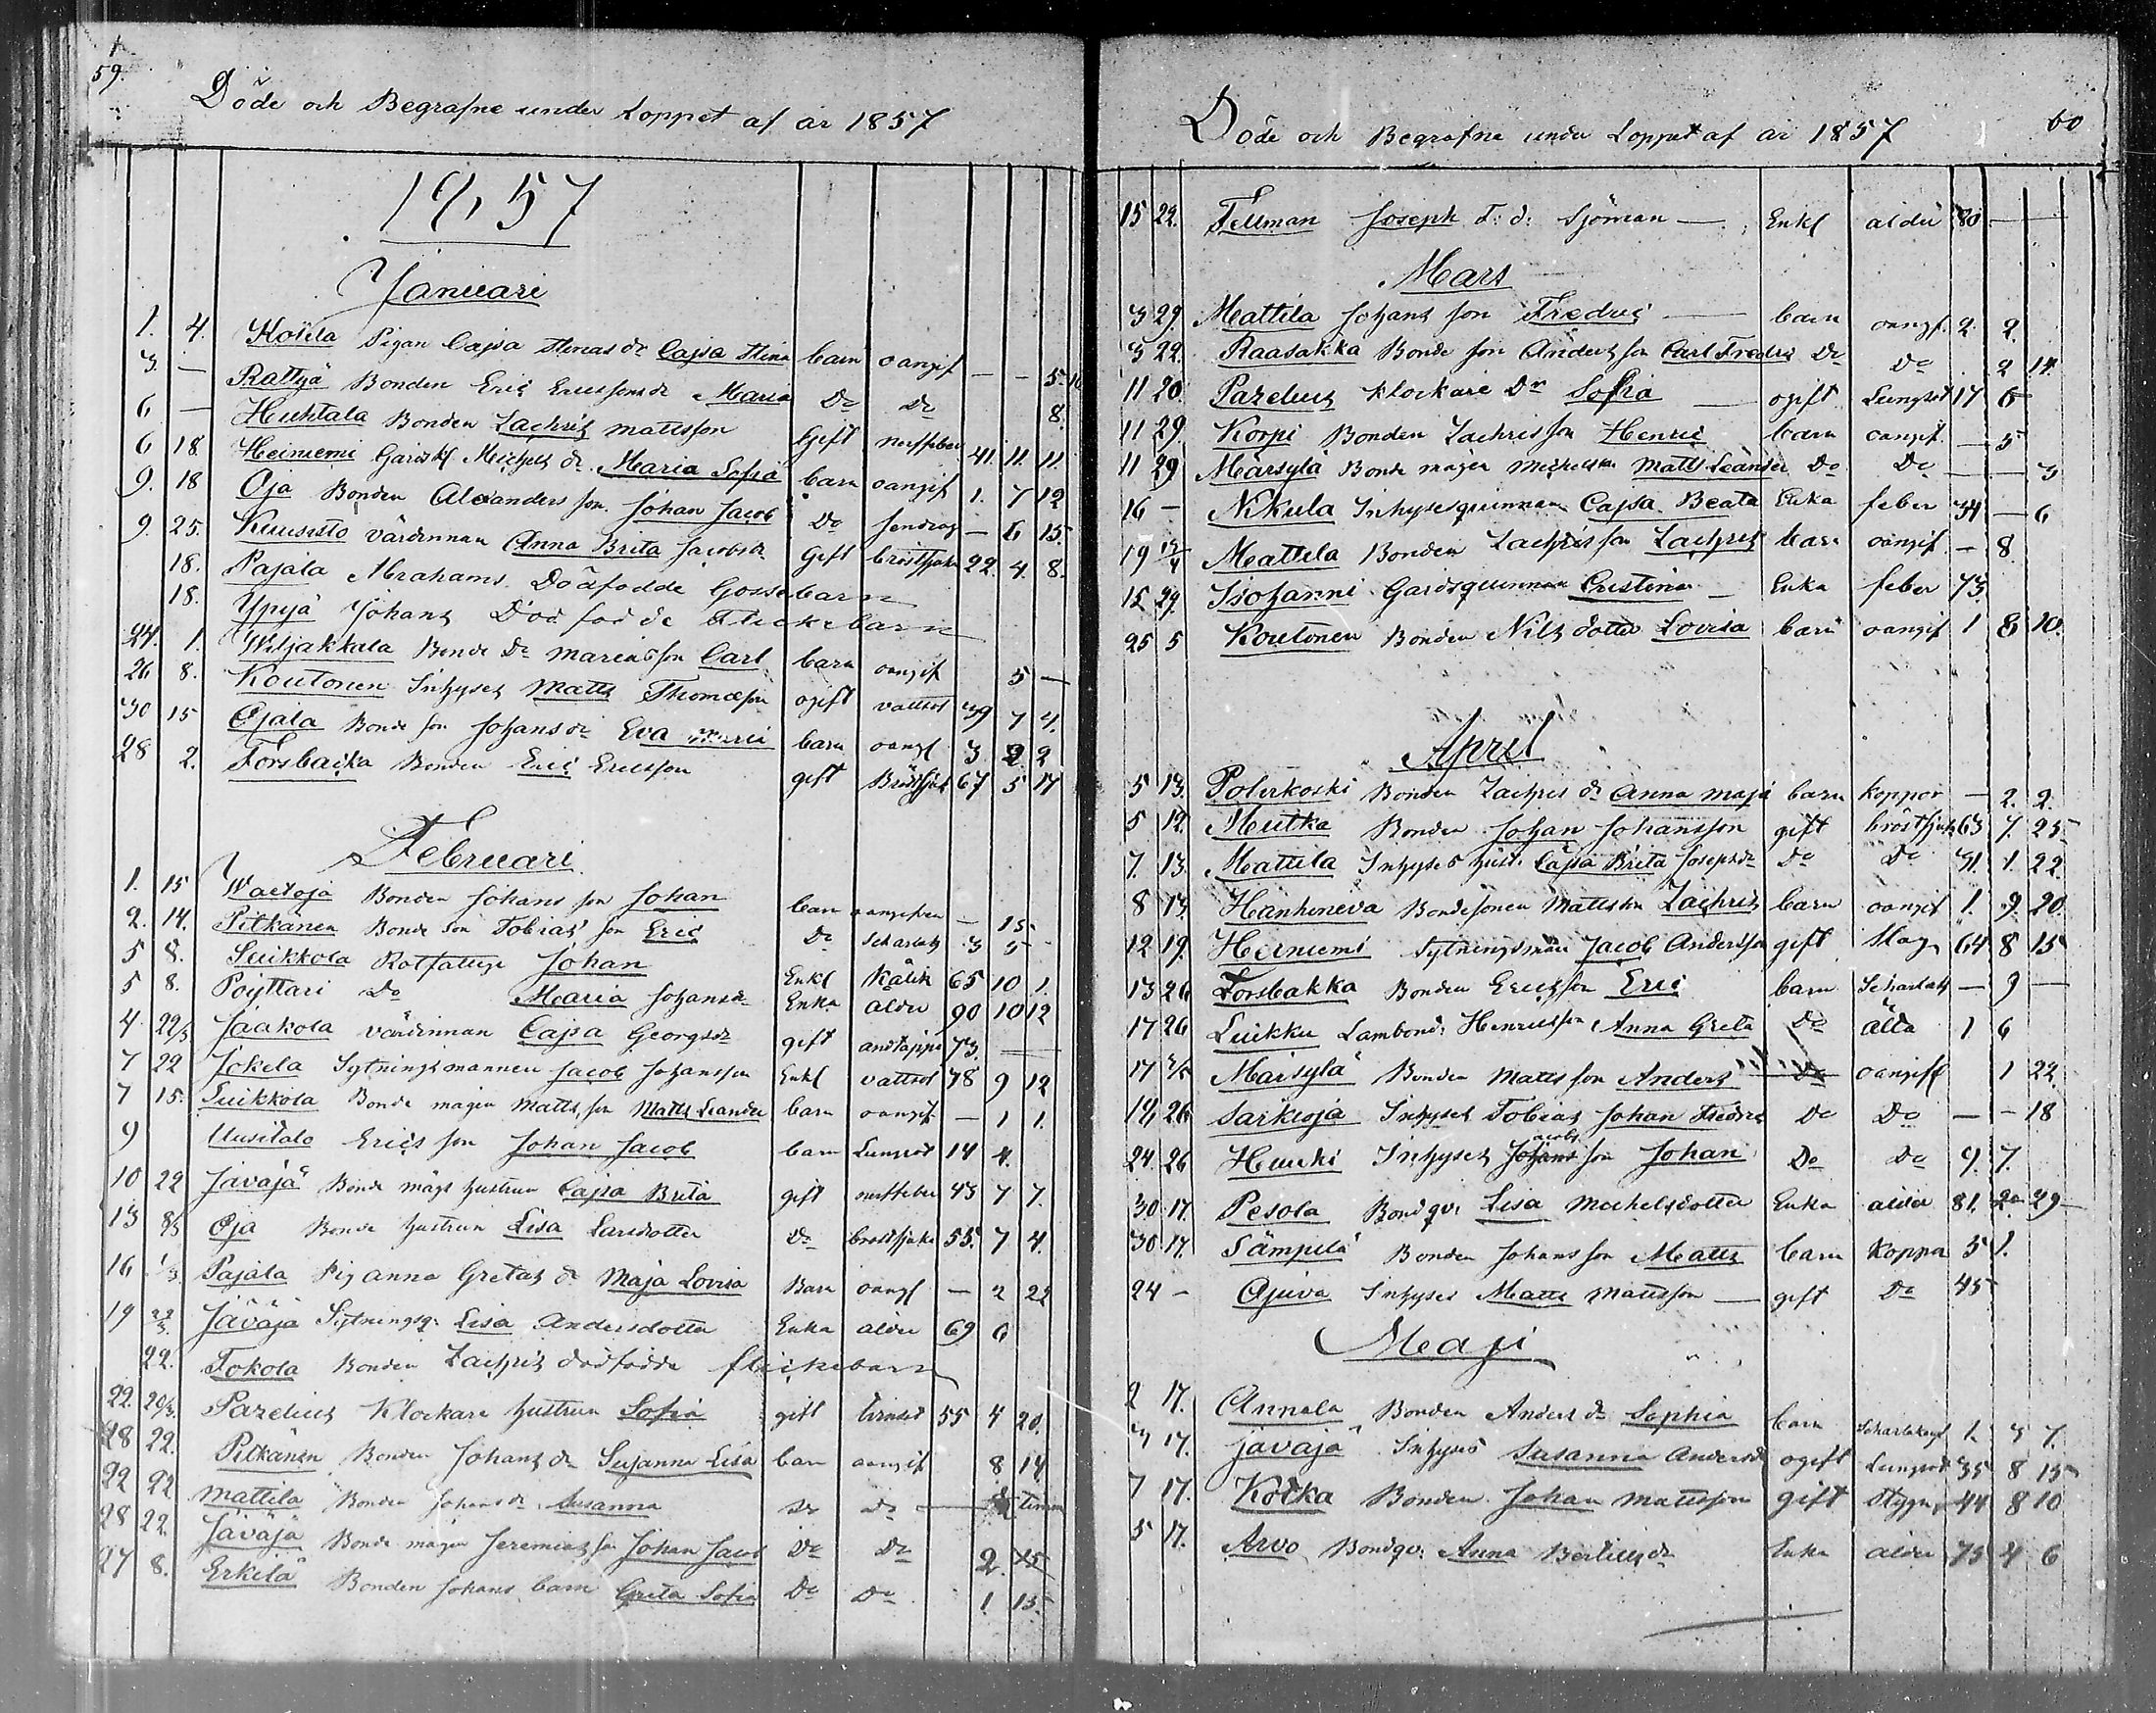 59.
Döde och Begrafne under Loppet af år 1857
1857
Januari
1. 4. Koitila Pigan Cajsa Stinas dr Cajsa Stina barn oangif — — 5. 10
3. — Rattyä Bonden Eric Ericssons dr Maria Do Do 8.
6 — Huhtala Bonden Zachris mattsson Gift nerffeber 41. 11. 11.
6 18. Heiniemi Michels dr Maria Sofia barn oangif 1. 7 12
9. 18 Oja Bonden Alexanders son Johan Jacob Do — 6 15.
9. 25. Kuusisto värdinnan Anna Brita Jacobsdr gift bröstsjuka 22. 4. 8.
18. Pajala Abrahams Dödfödde Gossebarn
18. Ypyä Johans Död födde Flickebarn
24. 1. Wiljakkala Bonde Dr marias son Carl barn oangif 5 —
26 8. Koutonen Inhyses Matts Thomasson ogift vattsot 39 7 4.
30 15 Ojala Bonde son Johans dr Eva Maria barn oangf 3 2 2
28 2. Forsbacka Bonden Eric Ericsson gift Bröstsjuk 67 5 17
Februari
1. 15 Waetoja Bonden Johans son Johan barn oangifven — 15.
2. 14. Pitkänen Bonde son Tobias son Eric Do Scharlak 3 5
5 8. Suikkola Rotfattige Johan Enkl 65 10 1.
5 8. Pöyttäri Do Maria Johansdr Enka ålder 90 10 12
4. 22/3 Jaakola värdinnan Cajsa Georgsdr gift andtäppa 73. —
7 22 Jokela Sytningsmannen Jacob Johansson Enkl vattsot 78 9 12
7 15. Suikkola Bonde mågen Matts son Matts Leander barn oangif. — 1 1.
9 Uusitalo Erics son Johan Jacob barn Lungsot 14 4.
10 22 Jäväjä Bonde mågs hustrun Cajsa Brita gift nerffeber 43 7 7.
13 8/3 Oja Bonde hustrun Lisa Larsdotter Do bröstsjuka 55. 7 4.
16 1/3 Pajala Pig anna Gretas dr Maja Lovisa Barn oangf — 2 22
19 22/3 Jäväjä Sytningsq. Lisa Andersdotter Enka ålder 69 6
22. Tokola Bonden Zachris dödfödde flickebarn
22. 29/3. Pazelius Klockare hustrun Sofia gift 55 4 20.
28 22. Pitkänen Bonden Johans dr Susanna Lisa barn oangif 8 14
22 22 Mattila Bonden Johans dr Susanna Do Do — timm
28 22. Jäväjä Bonde mågen Jeremias son Johan Jacob Do Do 2. 25
27 8. Erkilä Bonden Johans barn Greta Sofia Do Do 1. 13.
Döde och Begrafne under Loppet af år 1857 60
15 22. Fellman Joseph f: d: Sjöman — Enkl ålder 80 —
Mars
3 29. Mattila Johans son Fredric — barn oangf. 2. 2.
3 22. Raasakka Bonde son Anders son Carl Fredric Do Do 2 14.
11 20. Pazelius Klockare Dr Sofia — ogift Lungsot 17 6
11 29. Korpi Bonden Zachris son Henric barn oangif. — 5
11 29 Märsylä Bonde mågen Michels son Matts Leander Do Do — — 3
16 — Nikula Inhysesquinnan Cajsa Beata Enka feber 34 — 6
19 13/4 Mattila Bonden Zachris son Zachris barn oangif — 8
12 29. Isohanni Gårdsquinnan Cristina — Enka feber 73.
25 5 Koutonen Bonden Nils dotter Lovisa barn oangif 1 8 10.
April
5 13. Polerkoski Bonden Zachris dr Anna Maja barn koppor — 2. 2.
5 12. Mutka Bonden Johan Johansson gift bröstsjuk 63 7. 25
7. 13. Mattila Inhyses hust. Cajsa Brita Josephsdr Do Do 31. 1. 22.
8 13. Hanhineva Bondesonen Matts son Zachris barn oangif 1. 9. 20.
12 19. Heiniemi Sytningsman Jacob Andersson gift Slag 64 8 15
13 26 Forsbakka Bonden Erics son Eric barn Scharlak — 9 —
17 26 Luikku Lambond. Henricsson Anna Greta Do älta 1 6
17 3/5 Märsylä Bonden Matts son Anders Do oangiff 1 22.
14 26 Särkioja Inhyses Tobias Johan Fredric Do Do — — 18
24 26 Huuki Inhyses Johans jacobs son Johan Do Do 9. 7.
30 17. Pesola Bondqv. Lisa Michelsdotter Enka ålder 81. 2 29
30 17. Sämpilä Bonden Johans son Matts barn Koppor 5 1.
24 — Ojuva Inhyses Matts Mattsson — gift Do 45
Maji
2 17. Annala Bonden Anders dr Sophia barn 1. 3 7.
3 17. Jäväjä Inhyses Susanna Andersdr ogift Lungsot 35 8 15
7 17. Kotka Bonden Johan Mattsson gift Stygn 44 8 10
5 17. Arvo Bondqv. Anna Bertilsdr Enka ålder 75 4 6